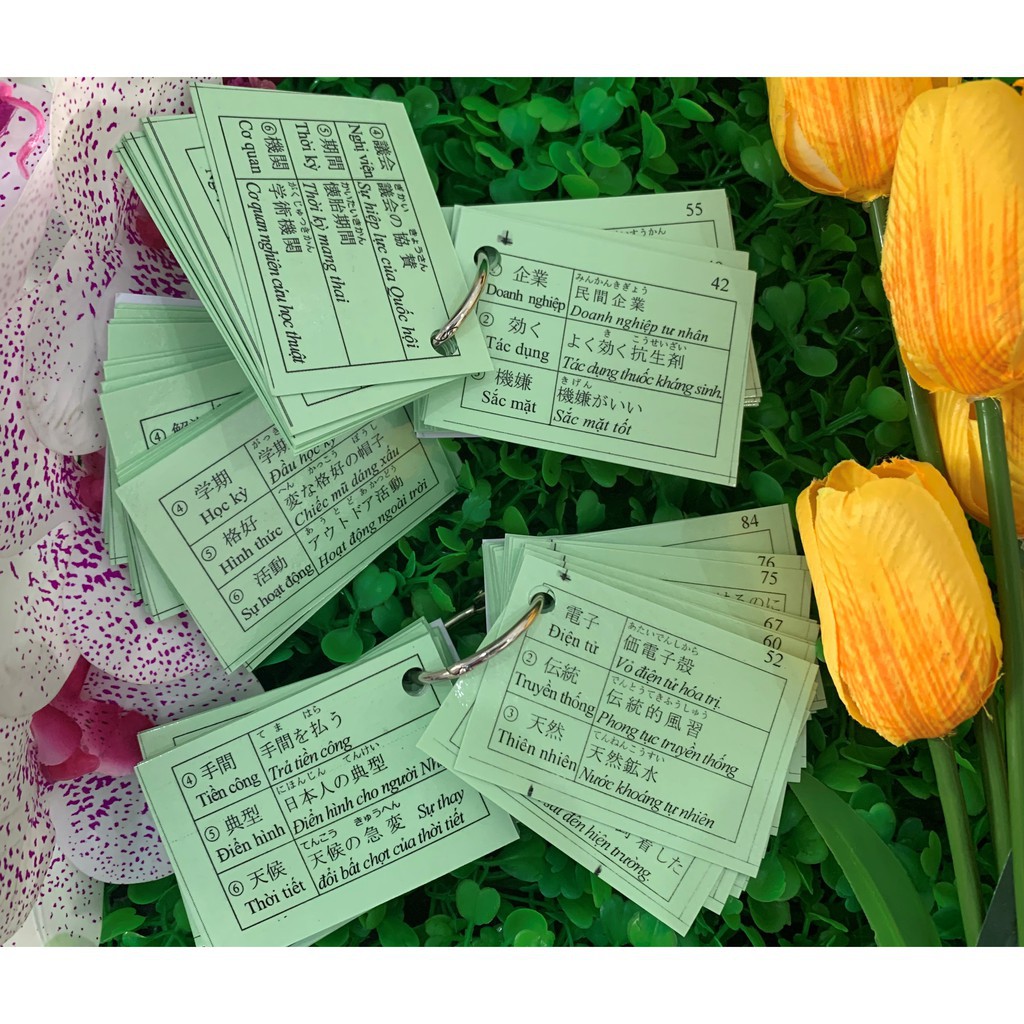 ④議会
Nghị viện
ぎかい きょうさん
議会の協賛
Sự hiệp lực của Quốc hội
⑤期間
Thời kỳ
かいたいきかん
懐胎期間
Thời kỳ mang thai
⑥機関
Cơ quan
がくじゅつきかん
学術機関
Cơ quan nghiên cứu học thuật
55
42
企業
Doanh nghiệp
みんかんきぎょう
民間企業
Doanh nghiệp tư nhân
② 効く
Tác dụng
き こうせいざい
よく効く抗生剤
Tác dụng thuốc kháng sinh.
機嫌
Sắc mặt
きげん
機嫌がいい
Sắc mặt tốt
④
④ 学期
Học kỳ
がっき
学期
Đầu học kỳ
⑤ 格好
Hình thức
へん かっこう ぼうし
変な格好の帽子
Chiếc mũ dáng xấu
⑥ 活動
Sự hoạt động
あうとどあかつどう
アウトドア活動
Hoạt động ngoài trời
84
76
75
67
60
52
電子
Điện tử
あたいでんしから
価電子殻
Vỏ điện tử hóa trị.
② 伝統
Truyền thống
でんとうてきふうしゅう
伝統的風習
Phong tục truyền thống
③ 天然
Thiên nhiên
てんねんこうすい
天然鉱水
Nước khoáng tự nhiên
着した
đến hiện trường.
④ 手間
Tiền công
てま はら
手間を払う
Trả tiền công
⑤ 典型
Điển hình
にほんじん てんけい
日本人の典型
Điển hình cho người
⑥ 天候
Thời tiết
てんこう きゅうへん
天候の急変 Sự thay
đổi bất chợt của thời tiết